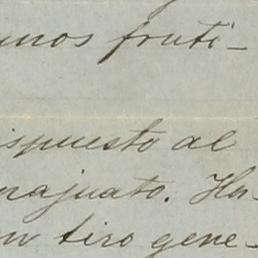 unos fruti-
ispuesto al
najuato. Ha-
un tiro gene-